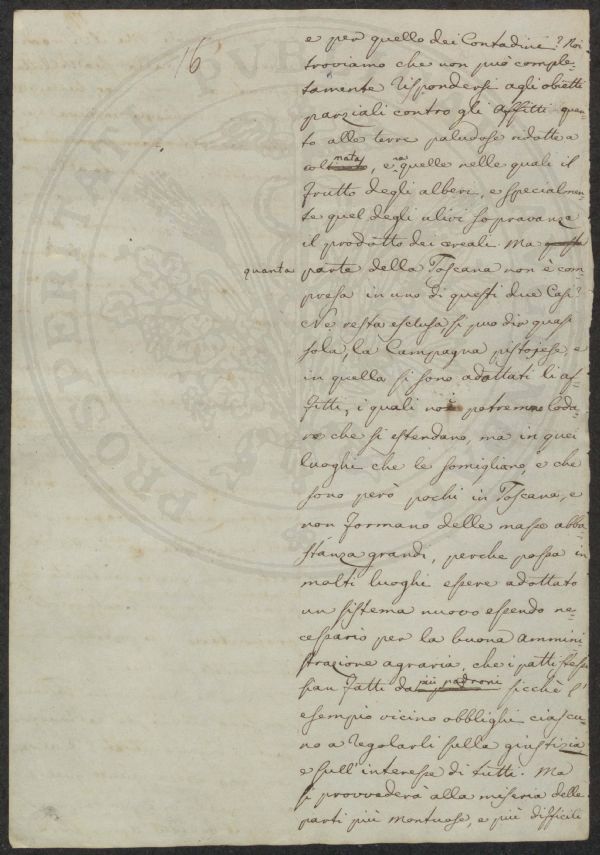 16
e per quello dei Contadini? Noi
troviamo che non può comple=
tamente rispondersi agli obietti
parziali contro gli affitti quan=
to alle terre paludose ridotte a
colmata, e a quelle nelle quali il
frutto degli alberi, e specialmen=
te quel degli ulivi sopravanza
il prodotto dei cereali. Ma questa
quanta parte della Toscana non è com=
presa in uno di questi due Casi?
Ne resta esclusa, si può dir quasi
sola, la Campagna pistojese, e
in quella si sono adottati li af=
fitti, i quali noi potremmo loda=
re che si estendano, ma in quei
luoghi che le somigliano, e che
sono però pochi in Toscana, e
non formano delle masse abba=
stanza grandi, perche possa in
molti luoghi essere adottato
un sistema nuovo essendo ne=
cessario per la buona ammini=
strazione agraria, che i patti stessi
sian fatti da più padroni sicchè l'
esempio vicino obblighi ciascu=
no a regolarli sulla giustizia
e sull'interesse di tutti. Ma
si provvederà alla miseria delle
parti più montuose, e più difficili
PROSPERITATI PUBL